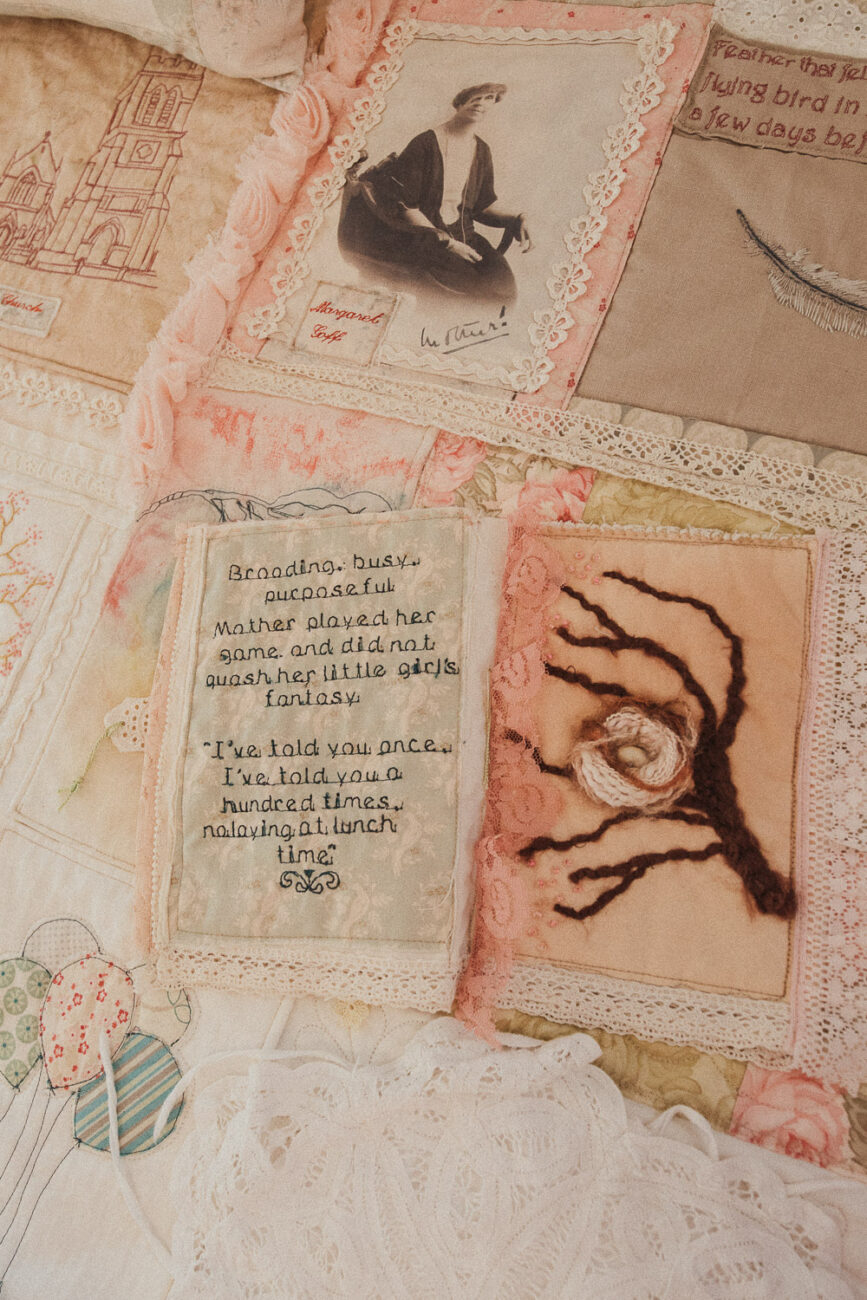 Feather that fel
flying bird in
a few days bef
Church
Margaret
Goff
Mother!
Brooding, busy,
purposeful
Mother played her
game and did not
quash her little girl's
fantasy
"I've told you once,
I've told you a
hundred times,
nolaying at lunch
time"